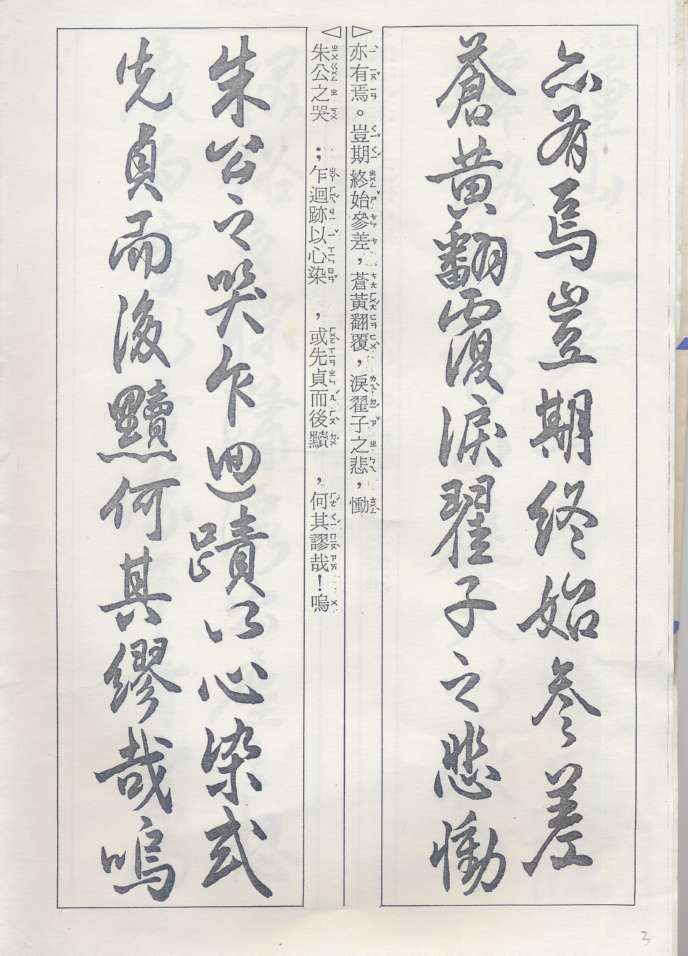 亦有焉豈期終始參差
蒼黃翻覆淚翟子之悲慟
亦有焉。豈期終始參差，蒼黃翻覆，淚翟子之悲，慟
朱公之哭；乍迴跡以心染，或先貞而後黷，何其謬哉！嗚
朱公之哭乍迴蹟以心染或
先貞而後黷何其繆哉嗚
3